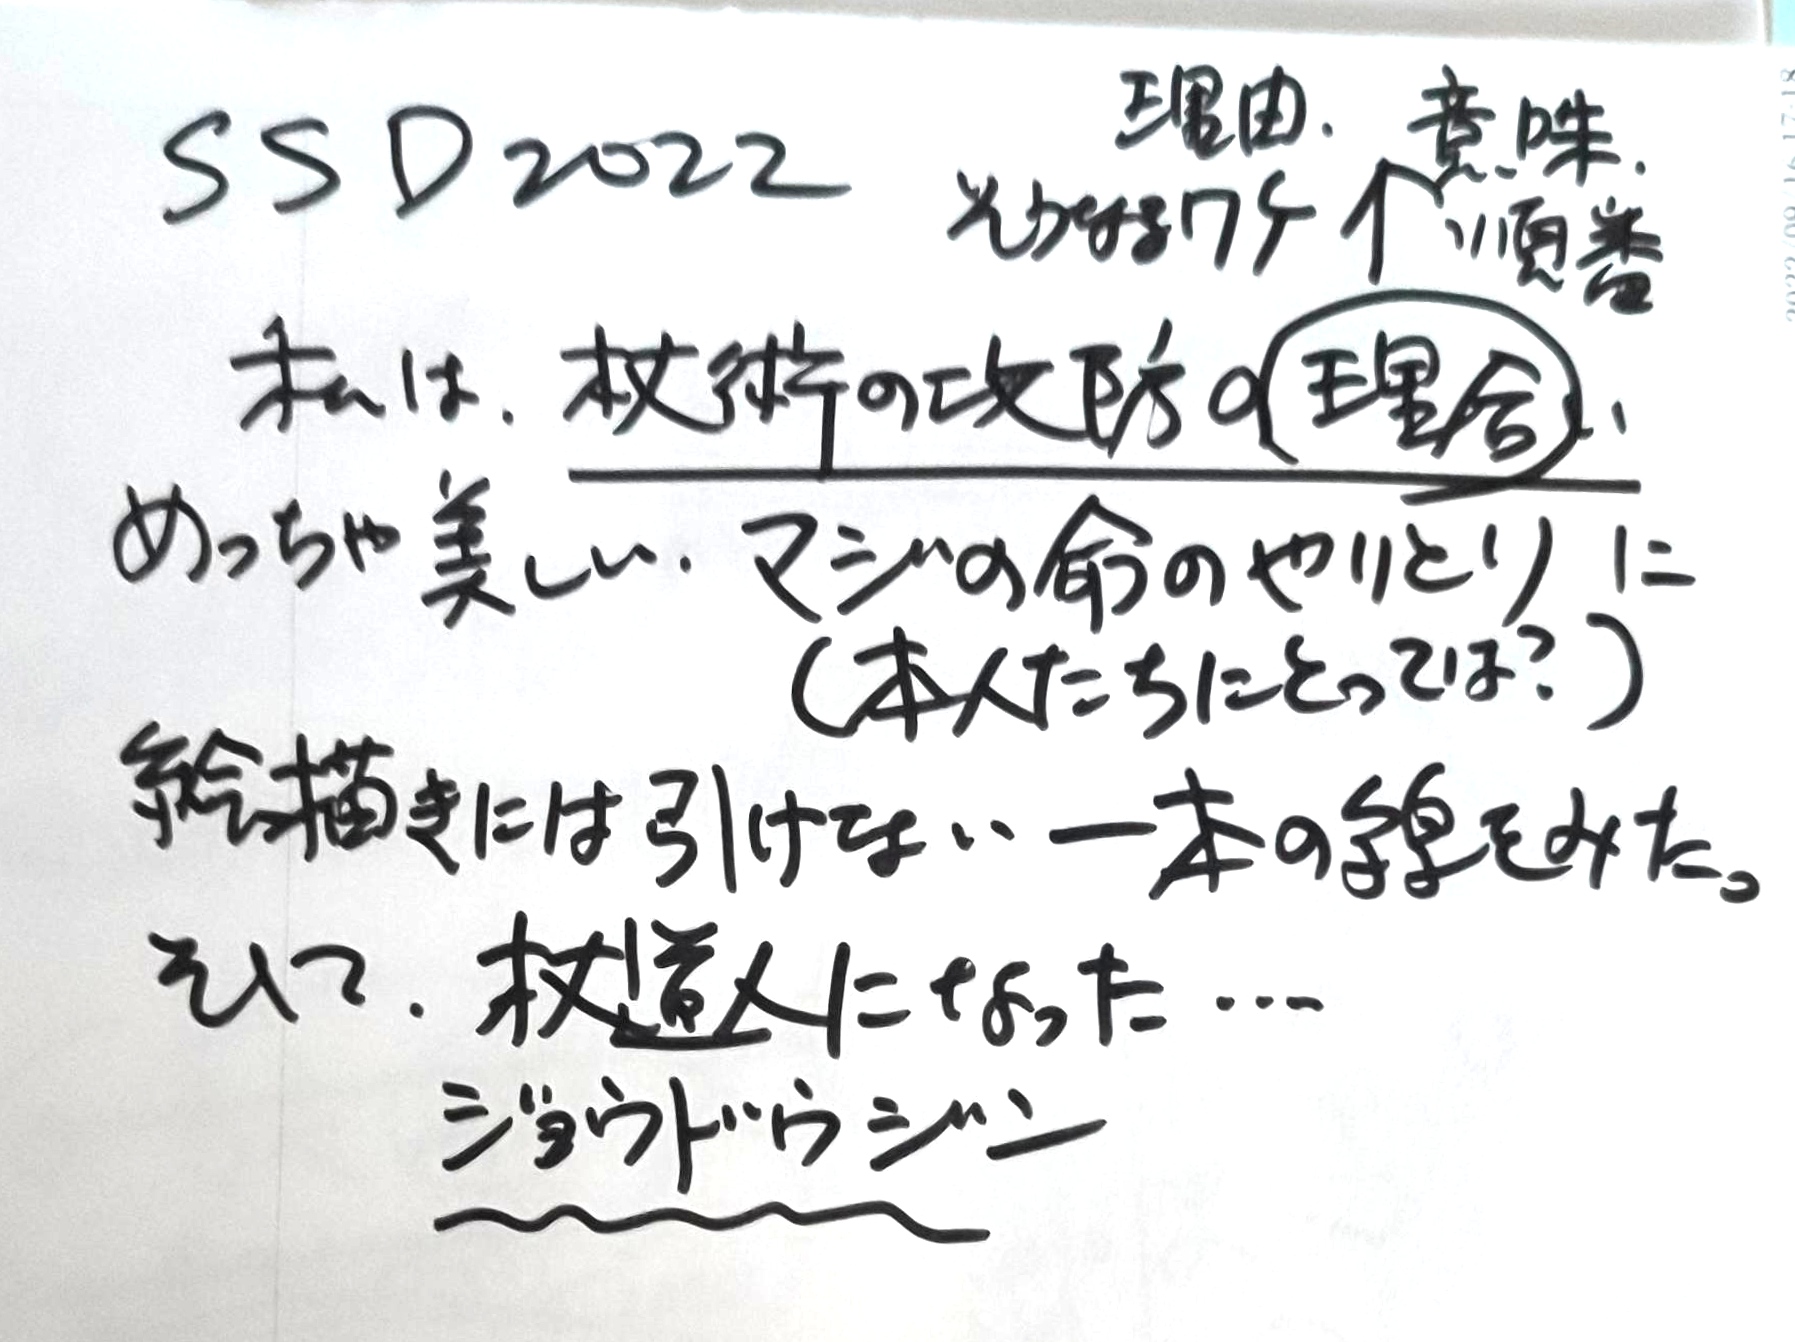 SSD2022
理由. 意味.
そうなるワケ ↑ 順番
私は、杖術の攻防の理合い
めっちゃ美しい、マジの命のやりとりに
(本人たちにとっては?)
絵描きには引けない一本の線をみた。
そして、杖道人になった…
ジョウドウジン